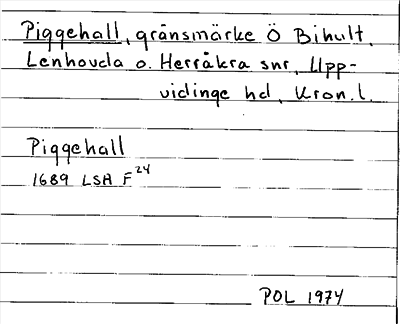 Piggehall, gränsmärke Ö Bihult,
Lenhovda o. Herråkra snr, Upp-
vidinge hd, Kron.l.
Piggehall
1689 LSA F24
POL 1974